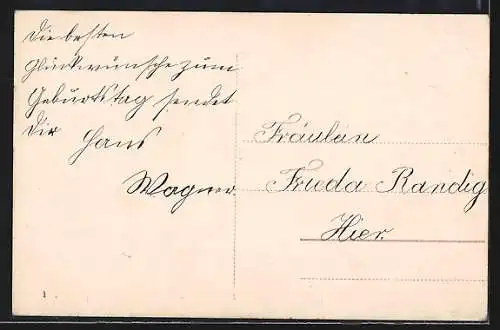 Die besten
Glückwünsche zum
Geburtstag sendet
Dir Hans
Wagner
Fräulein
Frieda Randig
Hier.